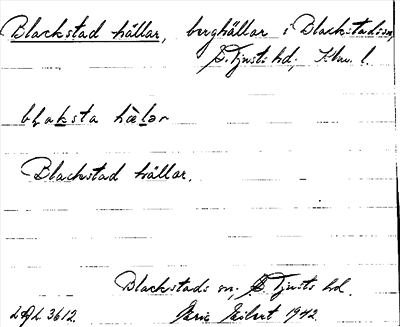 Blackstad hällar, berghällar i Blackstad sn,
S. Tjusts hd, Klm. l.
blaksta hälar
Blackstad hällar.
Blackstads sn, S. Tjusts hd.
1942.